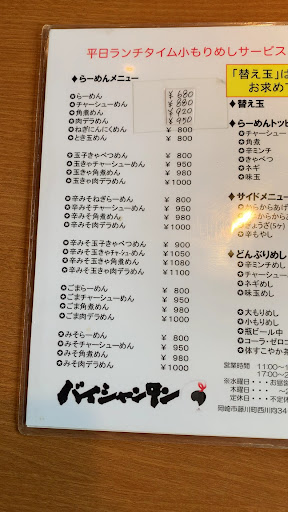 平日ランチタイム小もりめしサービス
♦らーめんメニュー
✪らーめん ¥680
✪チャーシューめん ¥880
✪角煮めん ¥920
✪肉デラめん ¥950
✪ねぎにんにくめん ¥ 800
✪とき玉めん ¥ 800
✪玉子きゃべつめん ¥ 800
✪玉きゃチャーシューめん ¥ 950
✪玉きゃ角煮めん ¥ 980
✪玉きゃ肉デラめん ¥1000
✪辛みそねぎらーめん ¥ 800
✪辛みそチャーシューめん ¥ 950
✪辛みそ角煮めん ¥ 980
✪辛みそ肉デラめん ¥1000
✪辛みそ玉子きゃべつめん ¥ 900
✪辛みそ玉きゃチャーシューめん ¥1050
✪辛みそ玉きゃ角煮めん ¥1080
✪辛みそ玉きゃ肉デラめん ¥1100
✪ごまらーめん ¥ 800
✪ごまチャーシューめん ¥ 950
✪ごま角煮めん ¥ 980
✪ごま肉デラめん ¥1000
✪みそらーめん ¥ 800
✪みそチャーシューめん ¥ 950
✪みそ角煮めん ¥ 980
✪みそ肉デラめん ¥1000
バイシャンタン
「替え玉」は
お求めて
♦替え玉
♦らーめんトッピ
✪チャーシュー
✪角煮
✪辛ミンチ
✪きゃべつ
✪ネギ
✪味玉
♦サイドメニュー
✪からからあげ
からから
✪ぎょうざ(5ケ)
✪辛もやし
♦どんぶりめし
✪辛ミンチめし
✪チャーシュー
✪ネギめし
✪味玉めし
✪大もりめし
✪小もりめし
✪瓶ビール中
✪コーラ・ゼロコ
✪体すこやか茶
営業時間 11:00〜1
17:00〜2
※水曜日・・・お昼
木曜日・・・ 〜
定休日・・・不定休
岡崎市藤川町西川向34